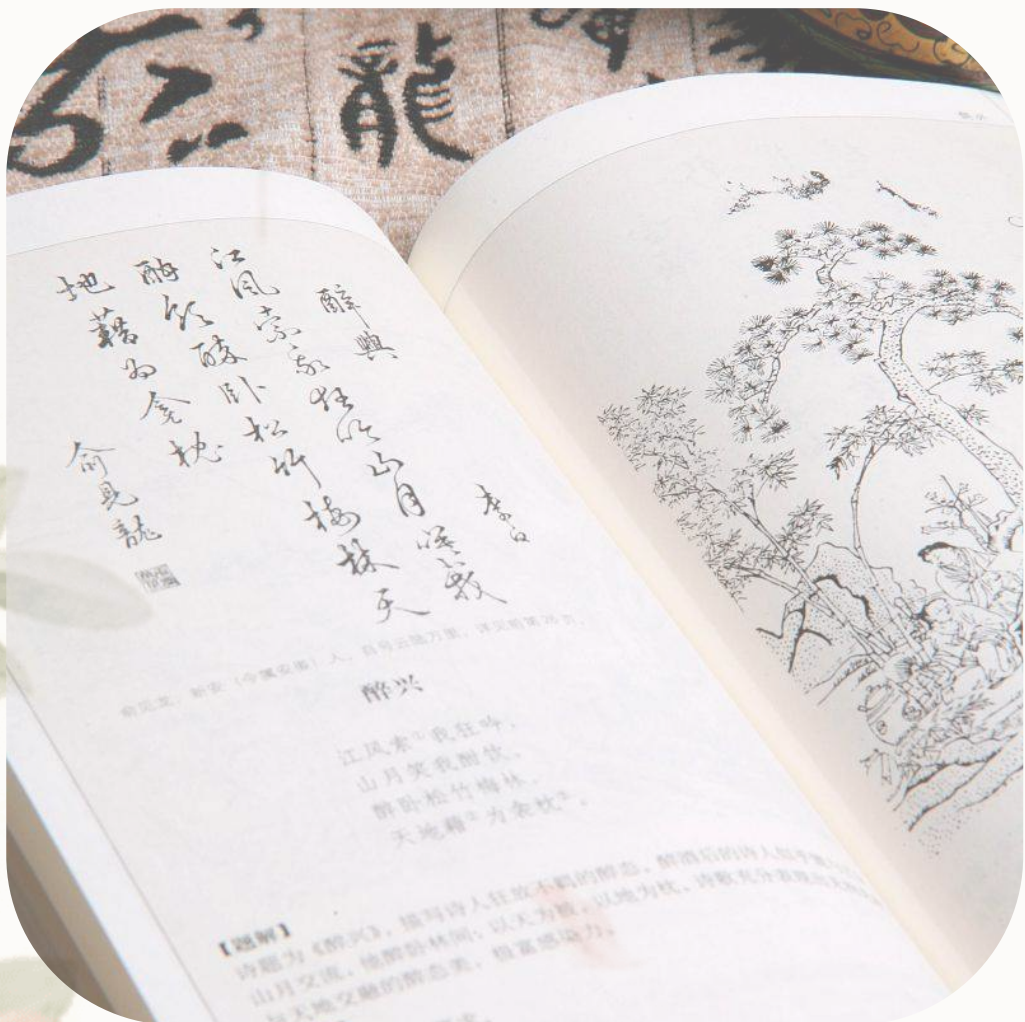 龍
醉興
李白
江風索我狂吟山月笑我
酣飲醉卧松竹梅林天
地藉为衾枕
俞見龍
俞见龙，新安（今属安徽）人，
醉兴
江风索①我狂吟，
山月笑我酣饮。
醉卧松竹梅林，
天地藉②为衾枕③。
【题解】
诗题为《醉兴》，描写诗人狂放不羁的醉态。醉酒后的诗人似乎
山月交流，他醉卧林间，以天为被，以地为枕，诗歌充分表现出
与天地交融的醉态美，极富感染力。